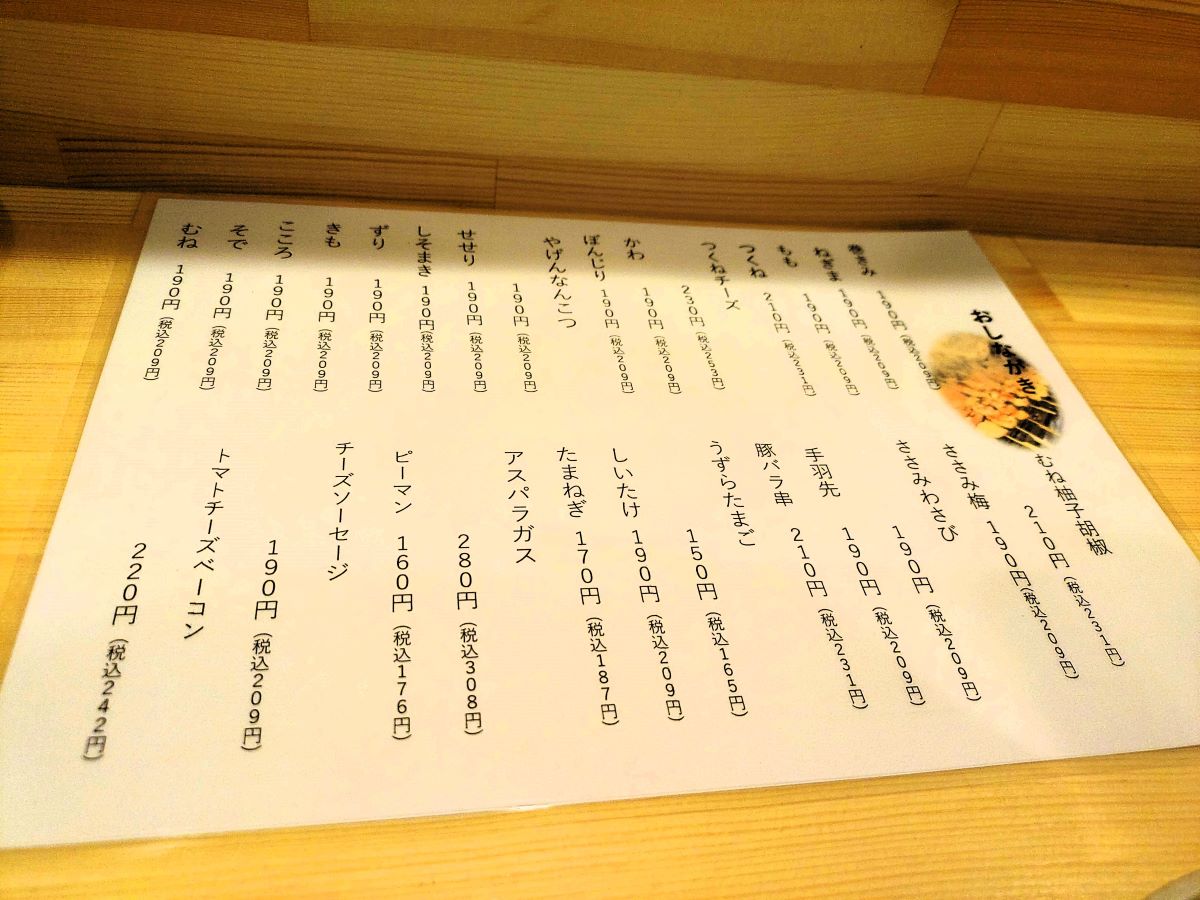 おしながき
190円（税込209円）
ねぎま 190円（税込209円）
もも 190円（税込209円）
つくね 210円（税込231円）
つくねチーズ
230円（税込253円）
かわ 190円（税込209円）
ぼんじり 190円（税込209円）
やげんなんこつ
190円（税込209円）
せせり 190円（税込209円）
しそまき 190円（税込209円）
ずり 190円（税込209円）
きも 190円（税込209円）
こころ 190円（税込209円）
そで 190円（税込209円）
むね 190円（税込209円）
むね柚子胡椒
210円（税込231円）
ささみ梅 190円（税込209円）
ささみわさび
190円（税込209円）
手羽先 190円（税込209円）
豚バラ串 210円（税込231円）
うずらたまご
150円（税込165円）
しいたけ 190円（税込209円）
たまねぎ 170円（税込187円）
アスパラガス
280円（税込308円）
ピーマン 160円（税込176円）
チーズソーセージ
190円（税込209円）
トマトチーズベーコン
220円（税込242円）